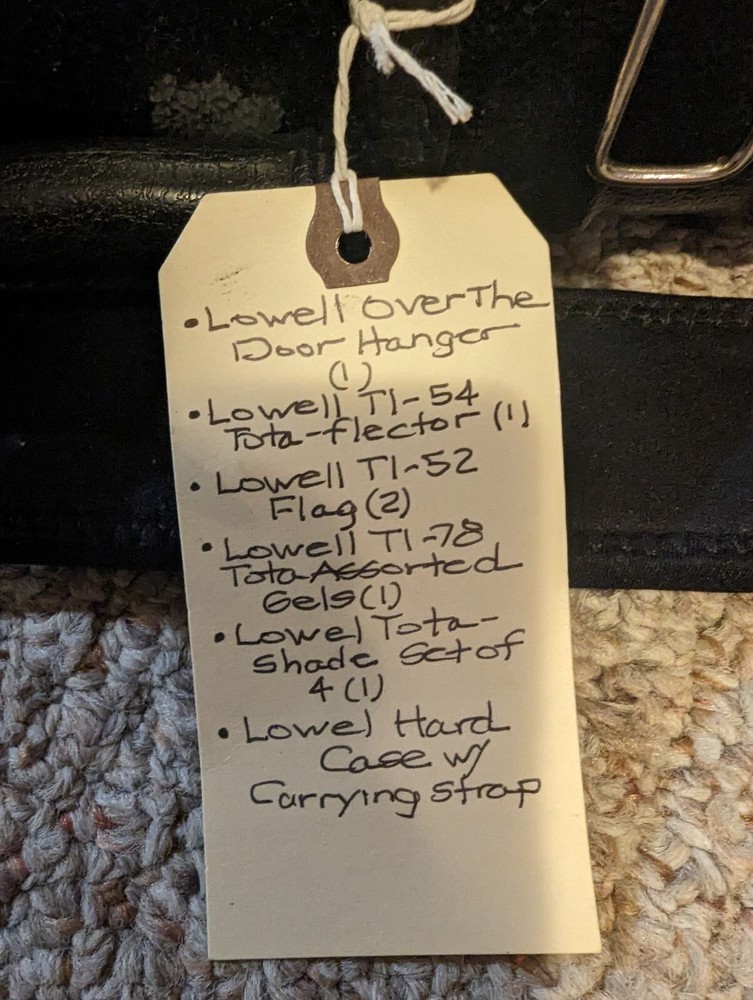 • Lowell Over The
Door Hanger
(1)
• Lowell T1-54
Tota-flector (1)
• Lowell T1-52
Flag (2)
• Lowell T1-78
Tota-Assorted
Gels (1)
• Lowel Tota-
shade Set of
4 (1)
• Lowel Hard
Case w/
Carrying strap